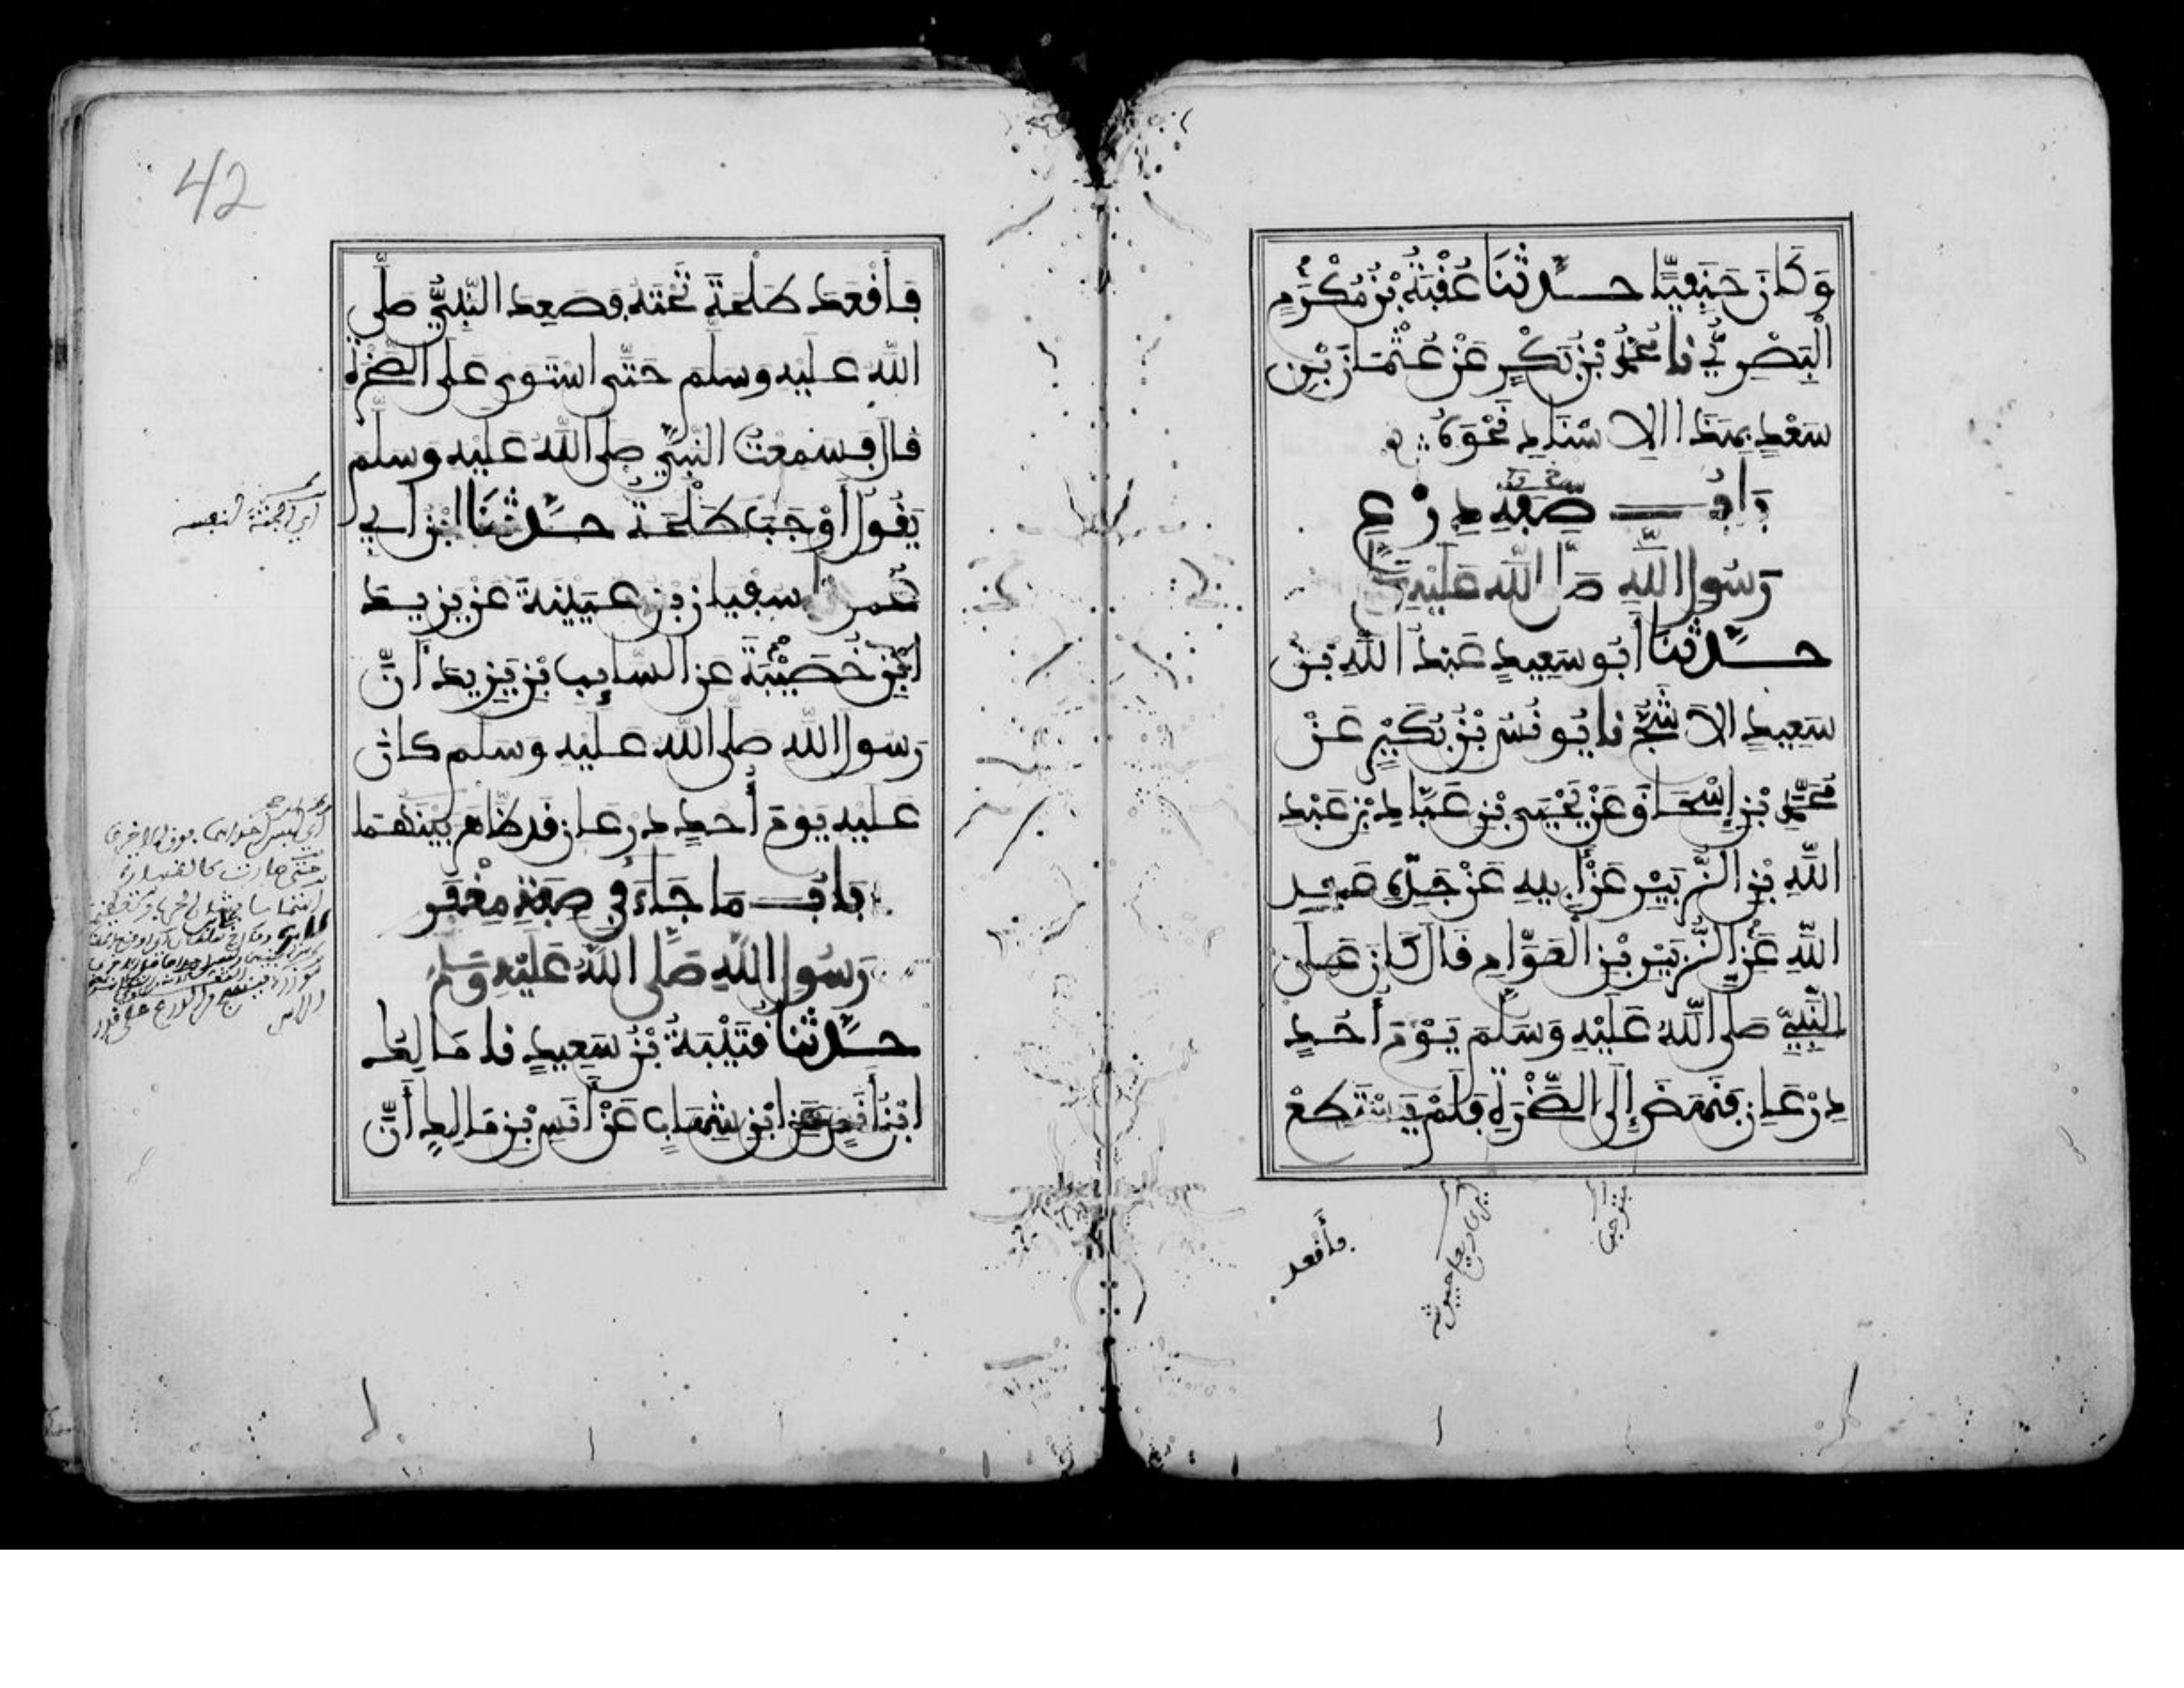 وَكَانَ حَنَفِيًّا حَدَّثَنَا عُقْبَةُ بْنُ مُكْرَمٍ
الْبَصْرِيُّ نا مُحَمَّدُ بْنُ بَكْرٍ عَنْ عُثْمَانَ بْنِ
سَعْدٍ بِهَذَا الْإِسْنَادِ نَحْوَهُ
بَابُ صِفَةِ دِرْعِ
رَسُولِ اللَّهِ صَلَّى اللَّهُ عَلَيْهِ
حَدَّثَنَا أَبُو سَعِيدٍ عَبْدُ اللَّهِ بْنُ
سَعِيدٍ الْأَشَجُّ نا يُونُسُ بْنُ بُكَيْرٍ عَنْ
مُحَمَّدِ بْنِ إِسْحَاقَ عَنْ يَحْيَى بْنِ عَبَّادِ بْنِ عَبْدِ
اللَّهِ بْنِ الزُّبَيْرِ عَنْ أَبِيهِ عَنْ جَدِّهِ عَبْدِ
اللَّهِ عَنِ الزُّبَيْرِ بْنِ الْعَوَّامِ قَالَ كَانَ عَلَى
النَّبِيِّ صَلَّى اللَّهُ عَلَيْهِ وَسَلَّمَ يَوْمَ أُحُدٍ
دِرْعَانِ فَنَهَضَ إِلَى الصَّخْرَةِ فَلَمْ يَسْتَطِعْ
فأقعد
42
فَأَقْعَدَ طَلْحَةَ تَحْتَهُ وَصَعِدَ النَّبِيُّ صَلَّى
اللَّهُ عَلَيْهِ وَسَلَّمَ حَتَّى اسْتَوَى عَلَى الصَّخْرَةِ
قَالَ فَسَمِعْتُ النَّبِيَّ صَلَّى اللَّهُ عَلَيْهِ وَسَلَّمَ
يَقُولُ أَوْجَبَ طَلْحَةُ حَدَّثَنَا ابْنُ أَبِي
عُمَرَ سُفْيَانُ بْنُ عُيَيْنَةَ عَنْ يَزِيدَ
ابْنِ خُصَيْفَةَ عَنِ السَّائِبِ بْنِ يَزِيدَ أَنَّ
رَسُولَ اللَّهِ صَلَّى اللَّهُ عَلَيْهِ وَسَلَّمَ كَانَ
عَلَيْهِ يَوْمَ أُحُدٍ دِرْعَانِ قَدْ ظَاهَرَ بَيْنَهُمَا
بَابُ مَا جَاءَ فِي صِفَةِ مِغْفَرِ
رَسُولِ اللَّهِ صَلَّى اللَّهُ عَلَيْهِ وَسَلَّمَ
حَدَّثَنَا قُتَيْبَةُ بْنُ سَعِيدٍ نا مَالِكُ
ابْنُ أَنَسٍ عَنِ ابْنِ شِهَابٍ عَنْ أَنَسِ بْنِ مَالِكٍ أَنَّ